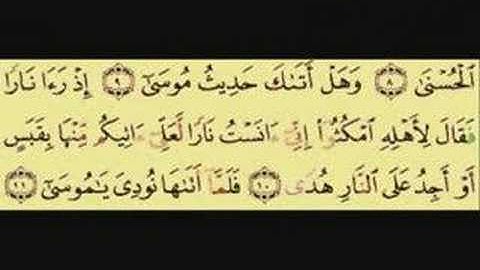 ٱلۡحُسۡنَىٰ ٨ وَهَلۡ أَتَىٰكَ حَدِيثُ مُوسَىٰٓ ٩ إِذۡ رَءَا نَارٗا
فَقَالَ لِأَهۡلِهِ ٱمۡكُثُوٓاْ إِنِّيٓ ءَانَسۡتُ نَارٗا لَّعَلِّيٓ ءَاتِيكُم مِّنۡهَا بِقَبَسٍ
أَوۡ أَجِدُ عَلَى ٱلنَّارِ هُدٗى ١٠ فَلَمَّآ أَتَىٰهَا نُودِيَ يَٰمُوسَىٰٓ ١١